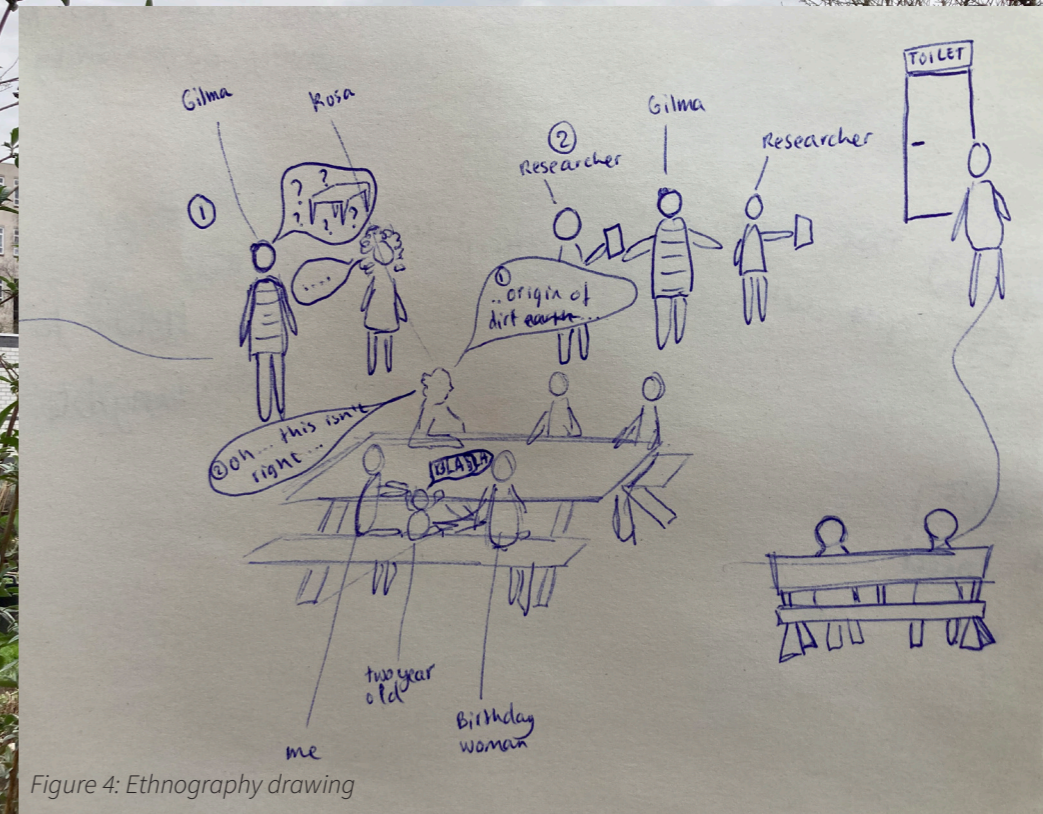 TOILET
Gilma
Rosa
Gilma
②
Researcher
Researcher
①
? ?
?
? ? ?
.....
①
..origin of
dirt earth...
② oh... this isn't
right...
BLABLA
two year
old
Birthday
woman
me
Figure 4: Ethnography drawing